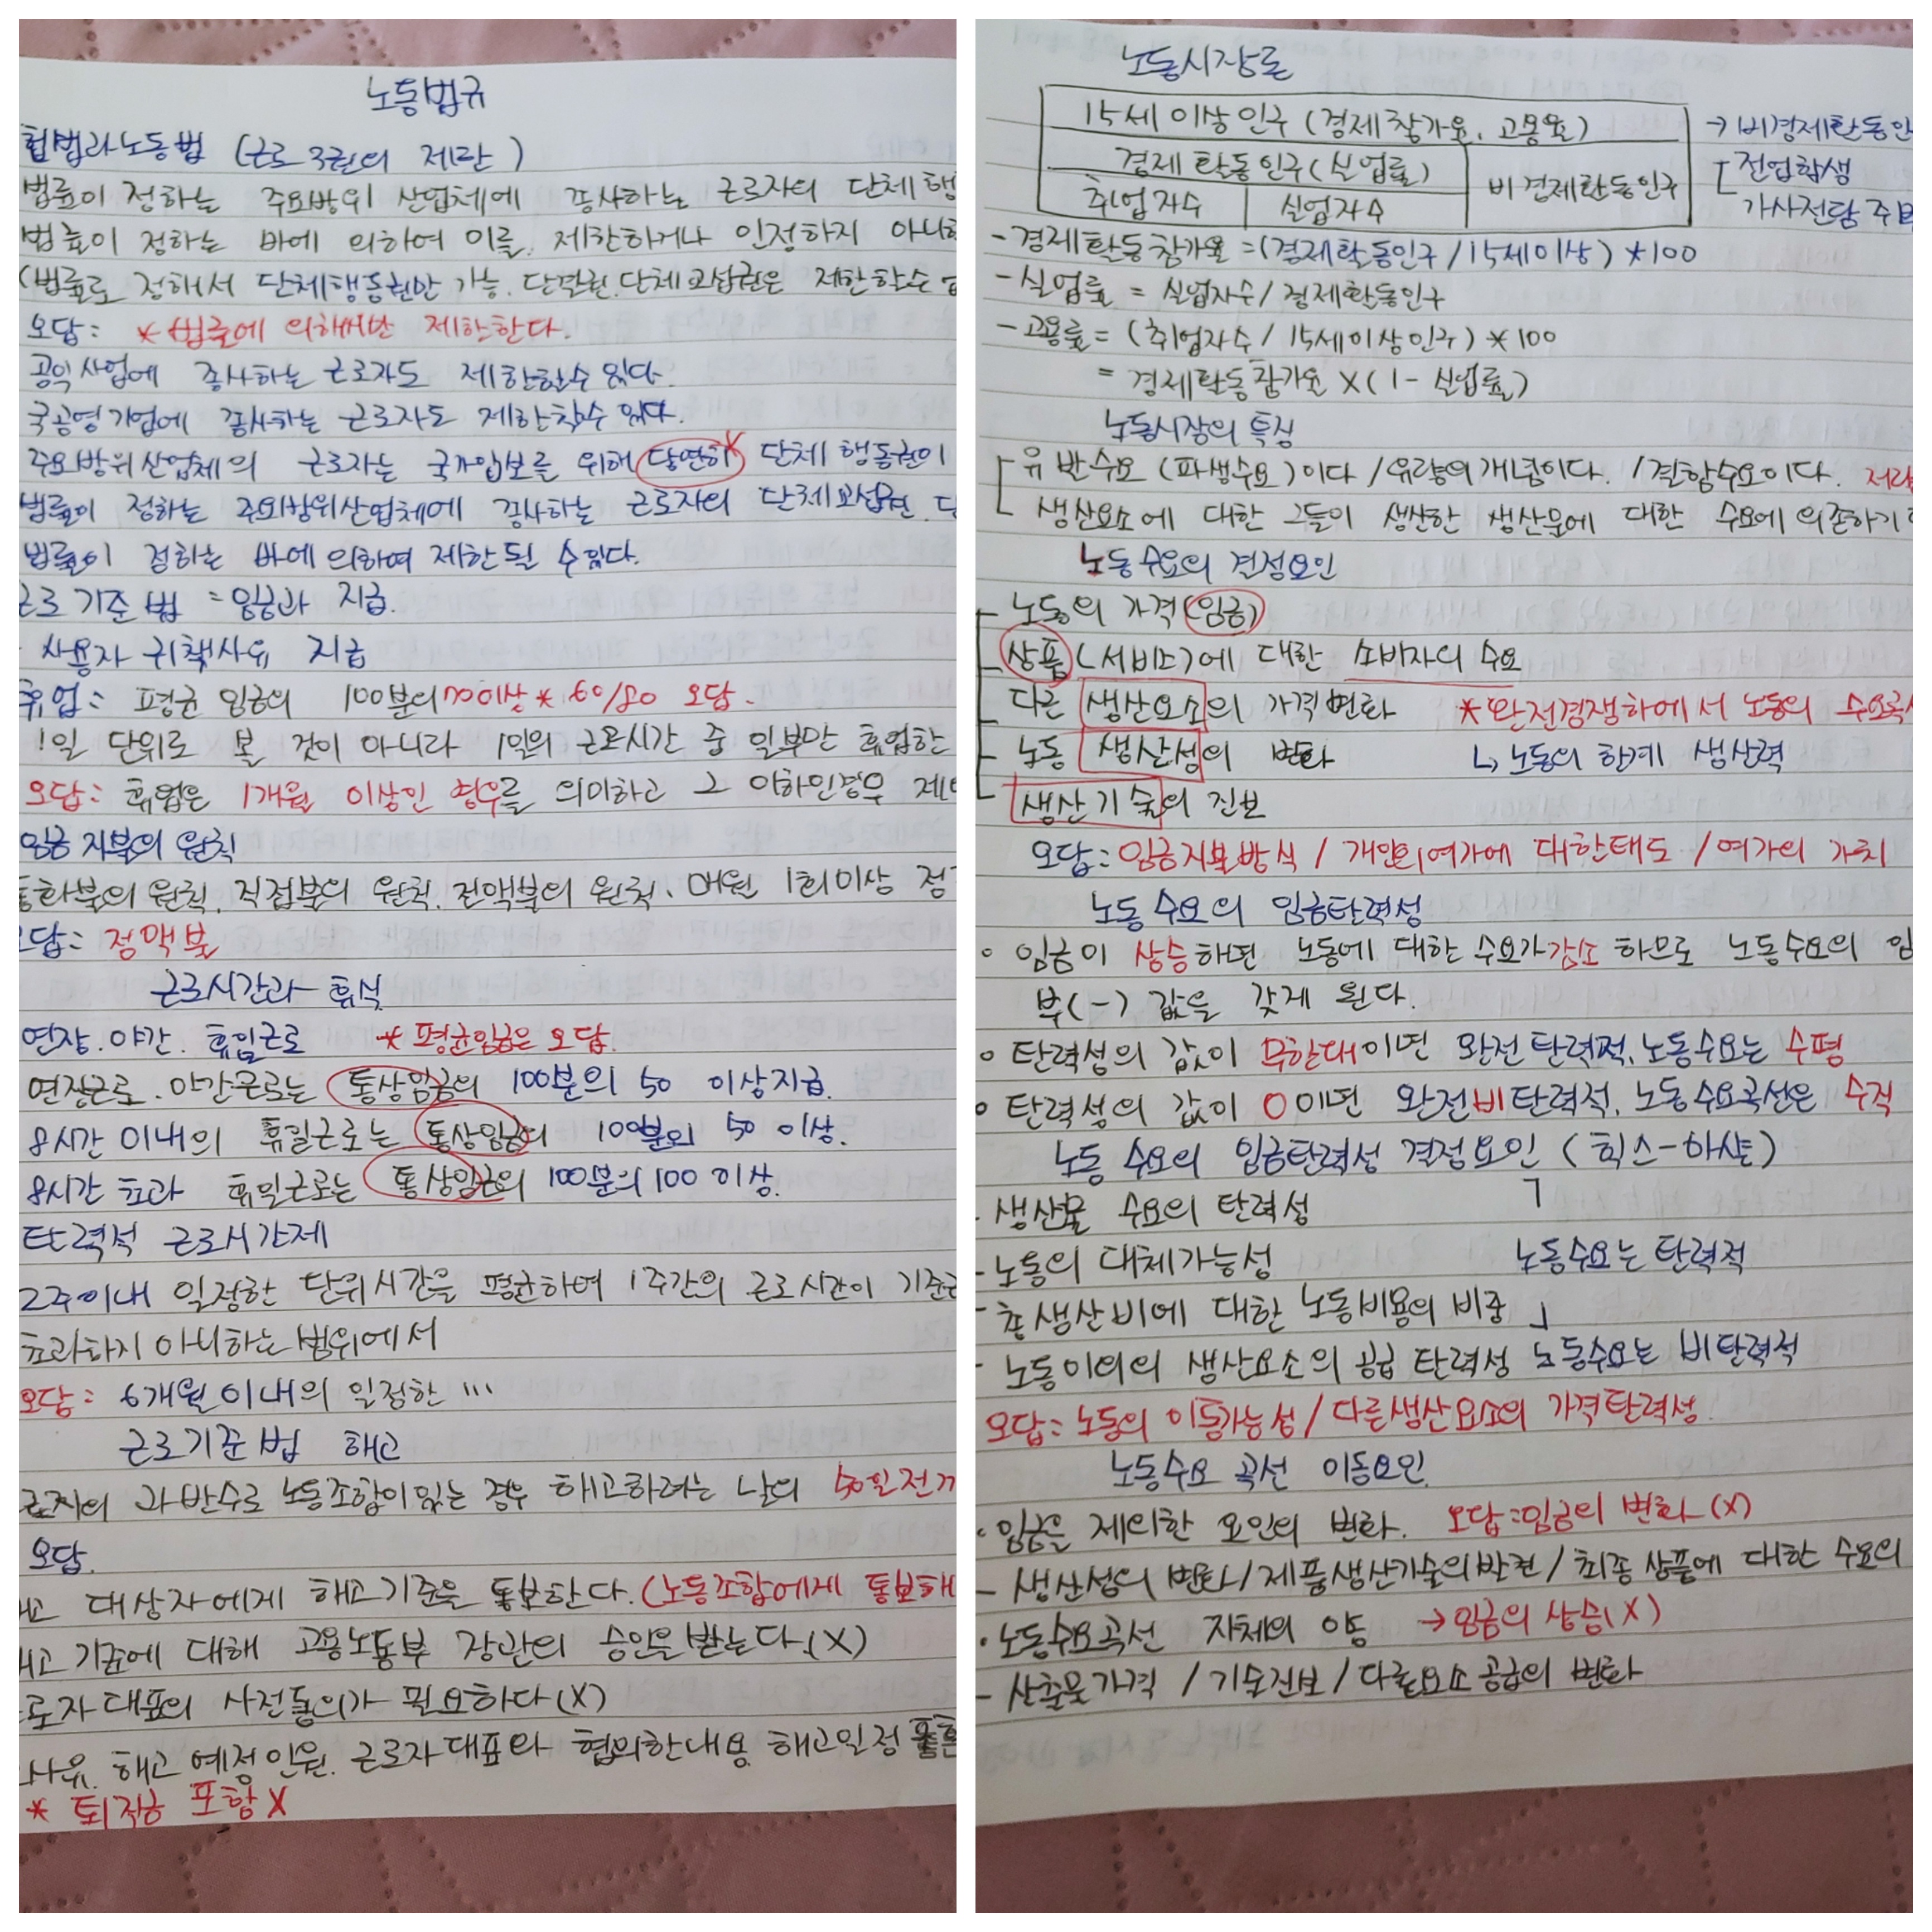 노동법규
헌법과 노동법 (근로3권의 제한)
법률이 정하는 주요방위 산업체에 종사하는 근로자의 단체행
법률이 정하는 바에 의하여 이를 제한하거나 인정하지 아니하
(법률로 정해서 단체행동권만 가능. 단결권. 단체교섭권은 제한할수
오답: *법률에 의해서만 제한한다.
공익사업에 종사하는 근로자도 제한할수 있다.
국공영기업에 종사하는 근로자도 제한할수 있다.
주요방위산업체의 근로자는 국가안보를 위해 당연히 단체행동권이
법률이 정하는 주요방위산업체에 종사하는 근로자의 단체교섭권. 단
법률이 정하는 바에 의하여 제한될 수 있다.
근로기준법 = 임금과 지급.
사용자 귀책사유 지급
휴업: 평균 임금의 100분의 70이상 * 60/80 오답.
1일 단위로 볼 것이 아니라 1일의 근로시간 중 일부만 휴업한
오답: 휴업은 1개월 이상인 경우를 의미하고 그 이하인경우 제
임금 지불의 원칙
통화불의 원칙. 직접불의 원칙. 전액불의 원칙. 매월 1회이상 정
오답: 정액불
근로시간과 휴식
연장. 야간. 휴일근로 * 평균임금은 오답.
연장근로. 야간근로는 통상임금의 100분의 50 이상지급.
8시간 이내의 휴일근로는 통상임금의 100분의 50 이상.
8시간 초과 휴일근로는 통상임금의 100분의 100 이상.
탄력적 근로시간제
2주이내 일정한 단위시간을 평균하여 1주간의 근로시간이 기준근
초과하지 아니하는 범위에서
오답: 6개월 이내의 일정한 …
근로기준법 해고
근로자의 과반수로 노동조합이 있는 경우 해고하려는 날의 50일전까
오답.
해고 대상자에게 해고기준을 통보한다. (노동조합에게 통보해
해고 기준에 대해 고용노동부 장관의 승인을 받는다.(X)
근로자대표의 사전동의가 필요하다 (X)
사유. 해고 예정인원. 근로자대표와 협의한내용 해고일정
* 퇴직금 포함 X
노동시장론
15세 이상 인구 (경제참가율. 고용율)
경제활동인구(실업률)
비경제활동인구
취업자수 실업자수
→ 비경제활동인
전업학생
가사전담 주부
- 경제활동참가율 = (경제활동인구 / 15세이상) *100
- 실업률 = 실업자수 / 경제활동인구
- 고용률 = (취업자수 / 15세이상인구) *100
= 경제활동참가율 X (1 - 실업률)
노동시장의 특징
유발수요 (파생수요) 이다 / 유량의 개념이다. / 결합수요이다. 저량
생산요소에 대한 그들이 생산한 생산물에 대한 수요에 의존하기
노동수요의 결정요인
노동의 가격 (임금)
상품 (서비스)에 대한 소비자의 수요
다른 생산요소의 가격변화 *완전경쟁하에서 노동의 수요곡선
노동 생산성의 변화 ↳ 노동의 한계 생산력
생산기술의 진보
오답: 임금지불방식 / 개인의여가에 대한태도 / 여가의 가치
노동수요의 임금탄력성
◦ 임금이 상승하면 노동에 대한 수요가 감소하므로 노동수요의 임
부(-) 값을 갖게 된다.
◦ 탄력성의 값이 무한대이면 완전탄력적. 노동수요는 수평
◦ 탄력성의 값이 0이면 완전비탄력적. 노동수요곡선은 수직
노동 수요의 임금탄력성 결정요인 (힉스-마샬)
- 생산물 수요의 탄력성 ㄱ
- 노동의 대체가능성 노동수요는 탄력적
- 총생산비에 대한 노동비용의 비중 」
- 노동이외의 생산요소의 공급 탄력성 노동수요는 비탄력적
오답: 노동의 이동가능성 / 다른생산요소의 가격탄력성
노동수요 곡선 이동요인.
· 임금을 제외한 요인의 변화. 오답:임금의 변화 (X)
- 생산성의 변화 / 제품생산기술의발전 / 최종상품에 대한 수요의
· 노동수요곡선 자체의 이동 → 임금의 상승(X)
- 산출물가격 / 기술진보 / 다른요소 공급의 변화